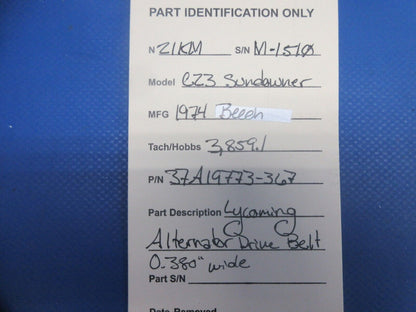 PART IDENTIFICATION ONLY
N 21KM S/N M-1510
Model C23 Sundowner
MFG 1974 Beech
Tach/Hobbs 3,859.1
P/N 37A19773-367
Part Description Lycoming
Alternator Drive Belt
0.380" wide
Part S/N
Date Removed